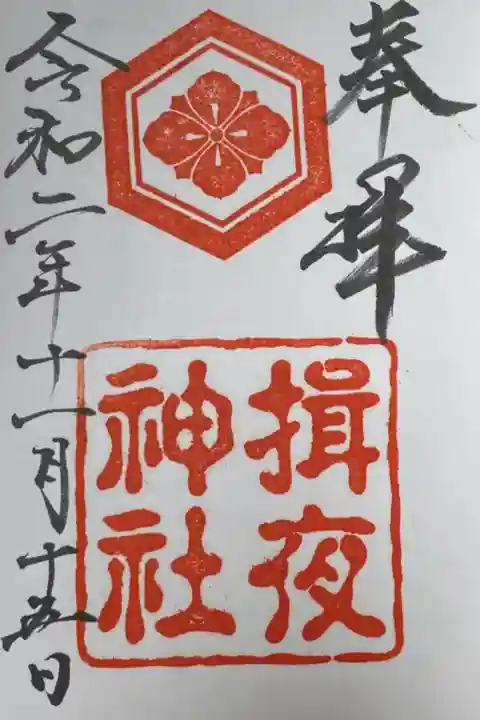 奉拝
揖夜
神社
令和二年十一月十五日